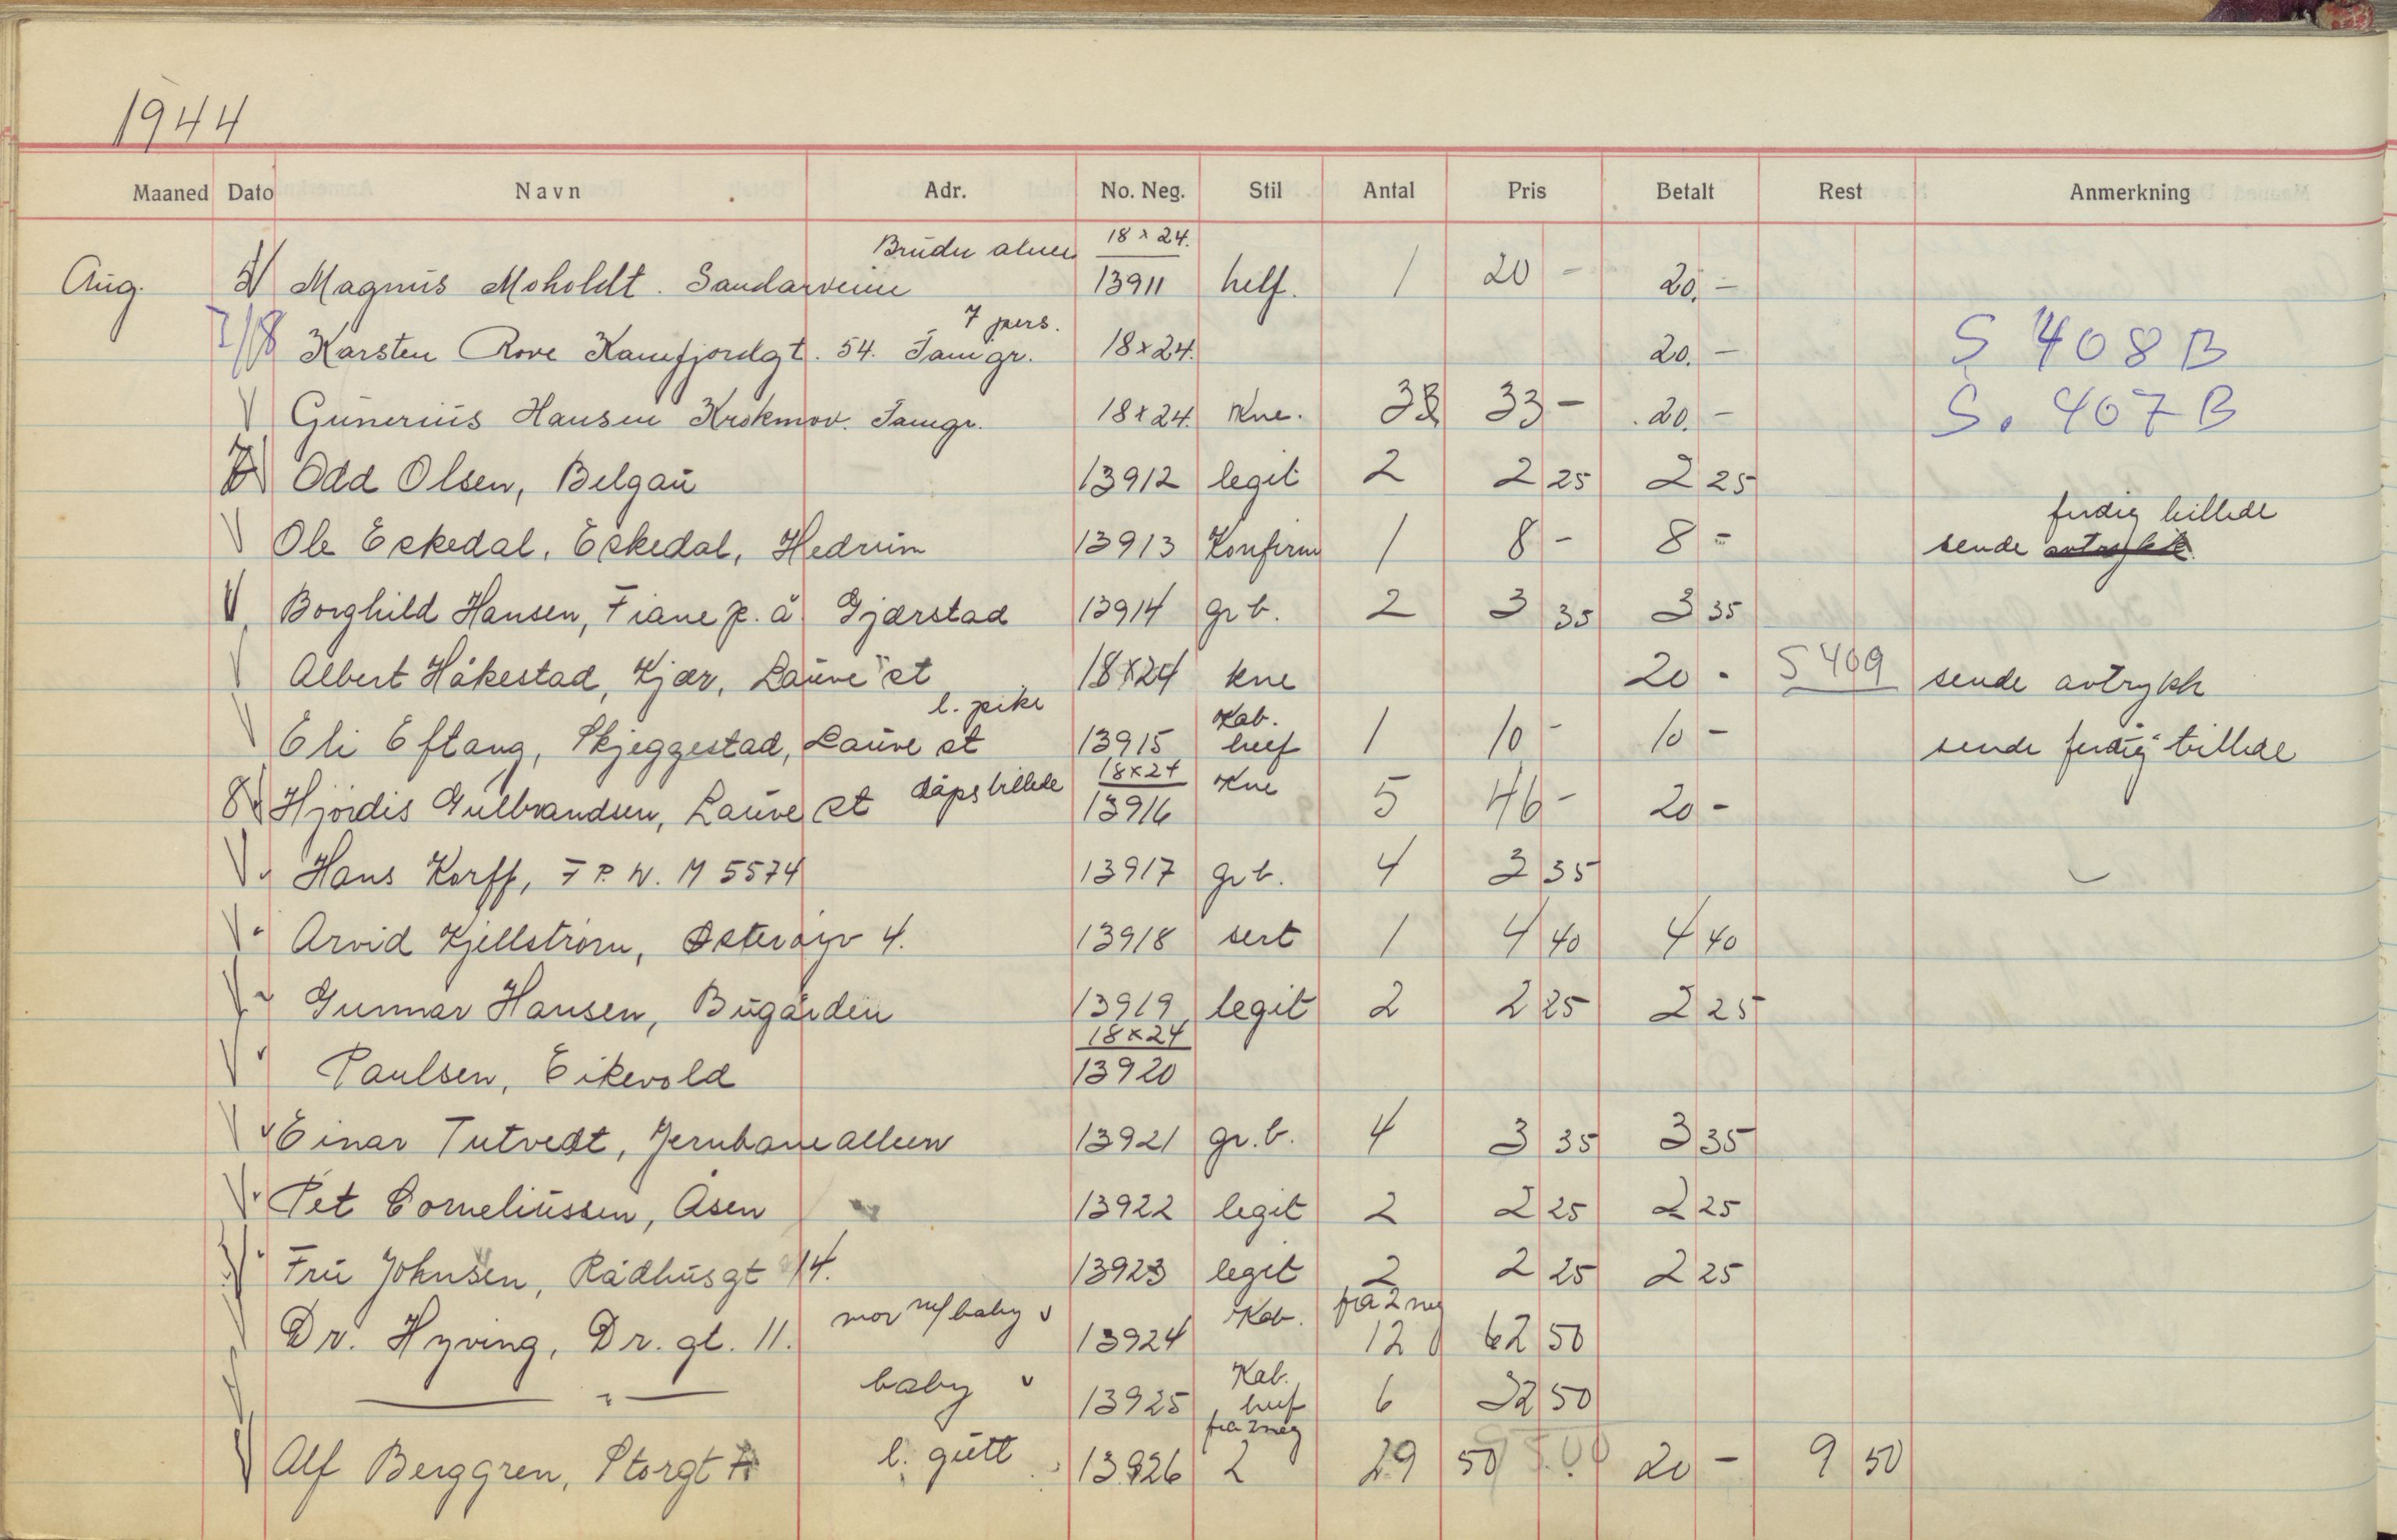 1944
Maaned Dato Navn Adr. No. Neg. Stil Antal Pris Betalt Rest Anmerkning
Aug. Magnus Moholdt. Sandarveien Brude alene 18x24. 13911 helf. 1 20 - 20.-
7/8 Karsten Rove Kamfjordgt. 54. Famgr. 7 pers. 18x24. 20.- S 408B
Gunerius Hansen Krokmov. Famgr. 18x24. Kne. 33 - 20.- S. 407B
Odd Olsen, Belgau 13912 legit 2 2 25 2 25
Ole Eskedal, Eskedal, Hedrum 13913 Konfirm 1 8 - 8 - sende avtrykk ferdig billede
Borghild Hansen, Fiane p. å. Gjærstad 13914 gr b. 2 3 35 3 35
Albert Håkestad, Kjær, Lauve st 18x24 kne 20 - S 409 sende avtrykk
Eli Eftang, Skjeggestad, Lauve st l. pike 13915 Kab. huf 1 10 - 10 - sende ferdig billede
8 Hjördis Gulbrandsen, Lauve st dåpsbillede 18x24 13916 Kne 5 46 - 20 -
Hans Korff, F P. N. M 5574 13917 gr b. 4 3 35
Arvid Kjellström, Østerøyv 4. 13918 sert 1 4 40 4 40
Gunnar Hansen, Bugården 13919 legit 2 2 25 2 25
Paulsen, Eikevold 18x24 13920
Einar Tutvedt, Jernbanealleen 13921 gr. b. 4 3 35 3 35
Pet Corneliussen, Åsen 13922 legit 2 2 25 2 25
Fru Johnsen, Rådhusgt 14. 13923 legit 2 2 25 2 25
Dr. Hyving, Dr. gt. 11. mor m/ baby v 13924 Kab. fra 2 neg 12 62 50
— " — baby v 13925 Kab. huf 6 32 50
Alf Berggren, Storgt l. gutt 13926 fra 2 neg 2 29 50 20 - 9 50